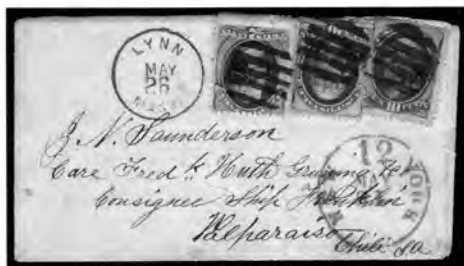 LYNN
MAY
26
MASS.
J. N. Saunderson
Care Fred k Huth Gruning & Co
Consignee Ship Franklin
Valparaiso
Chili SA
NEW YORK
12